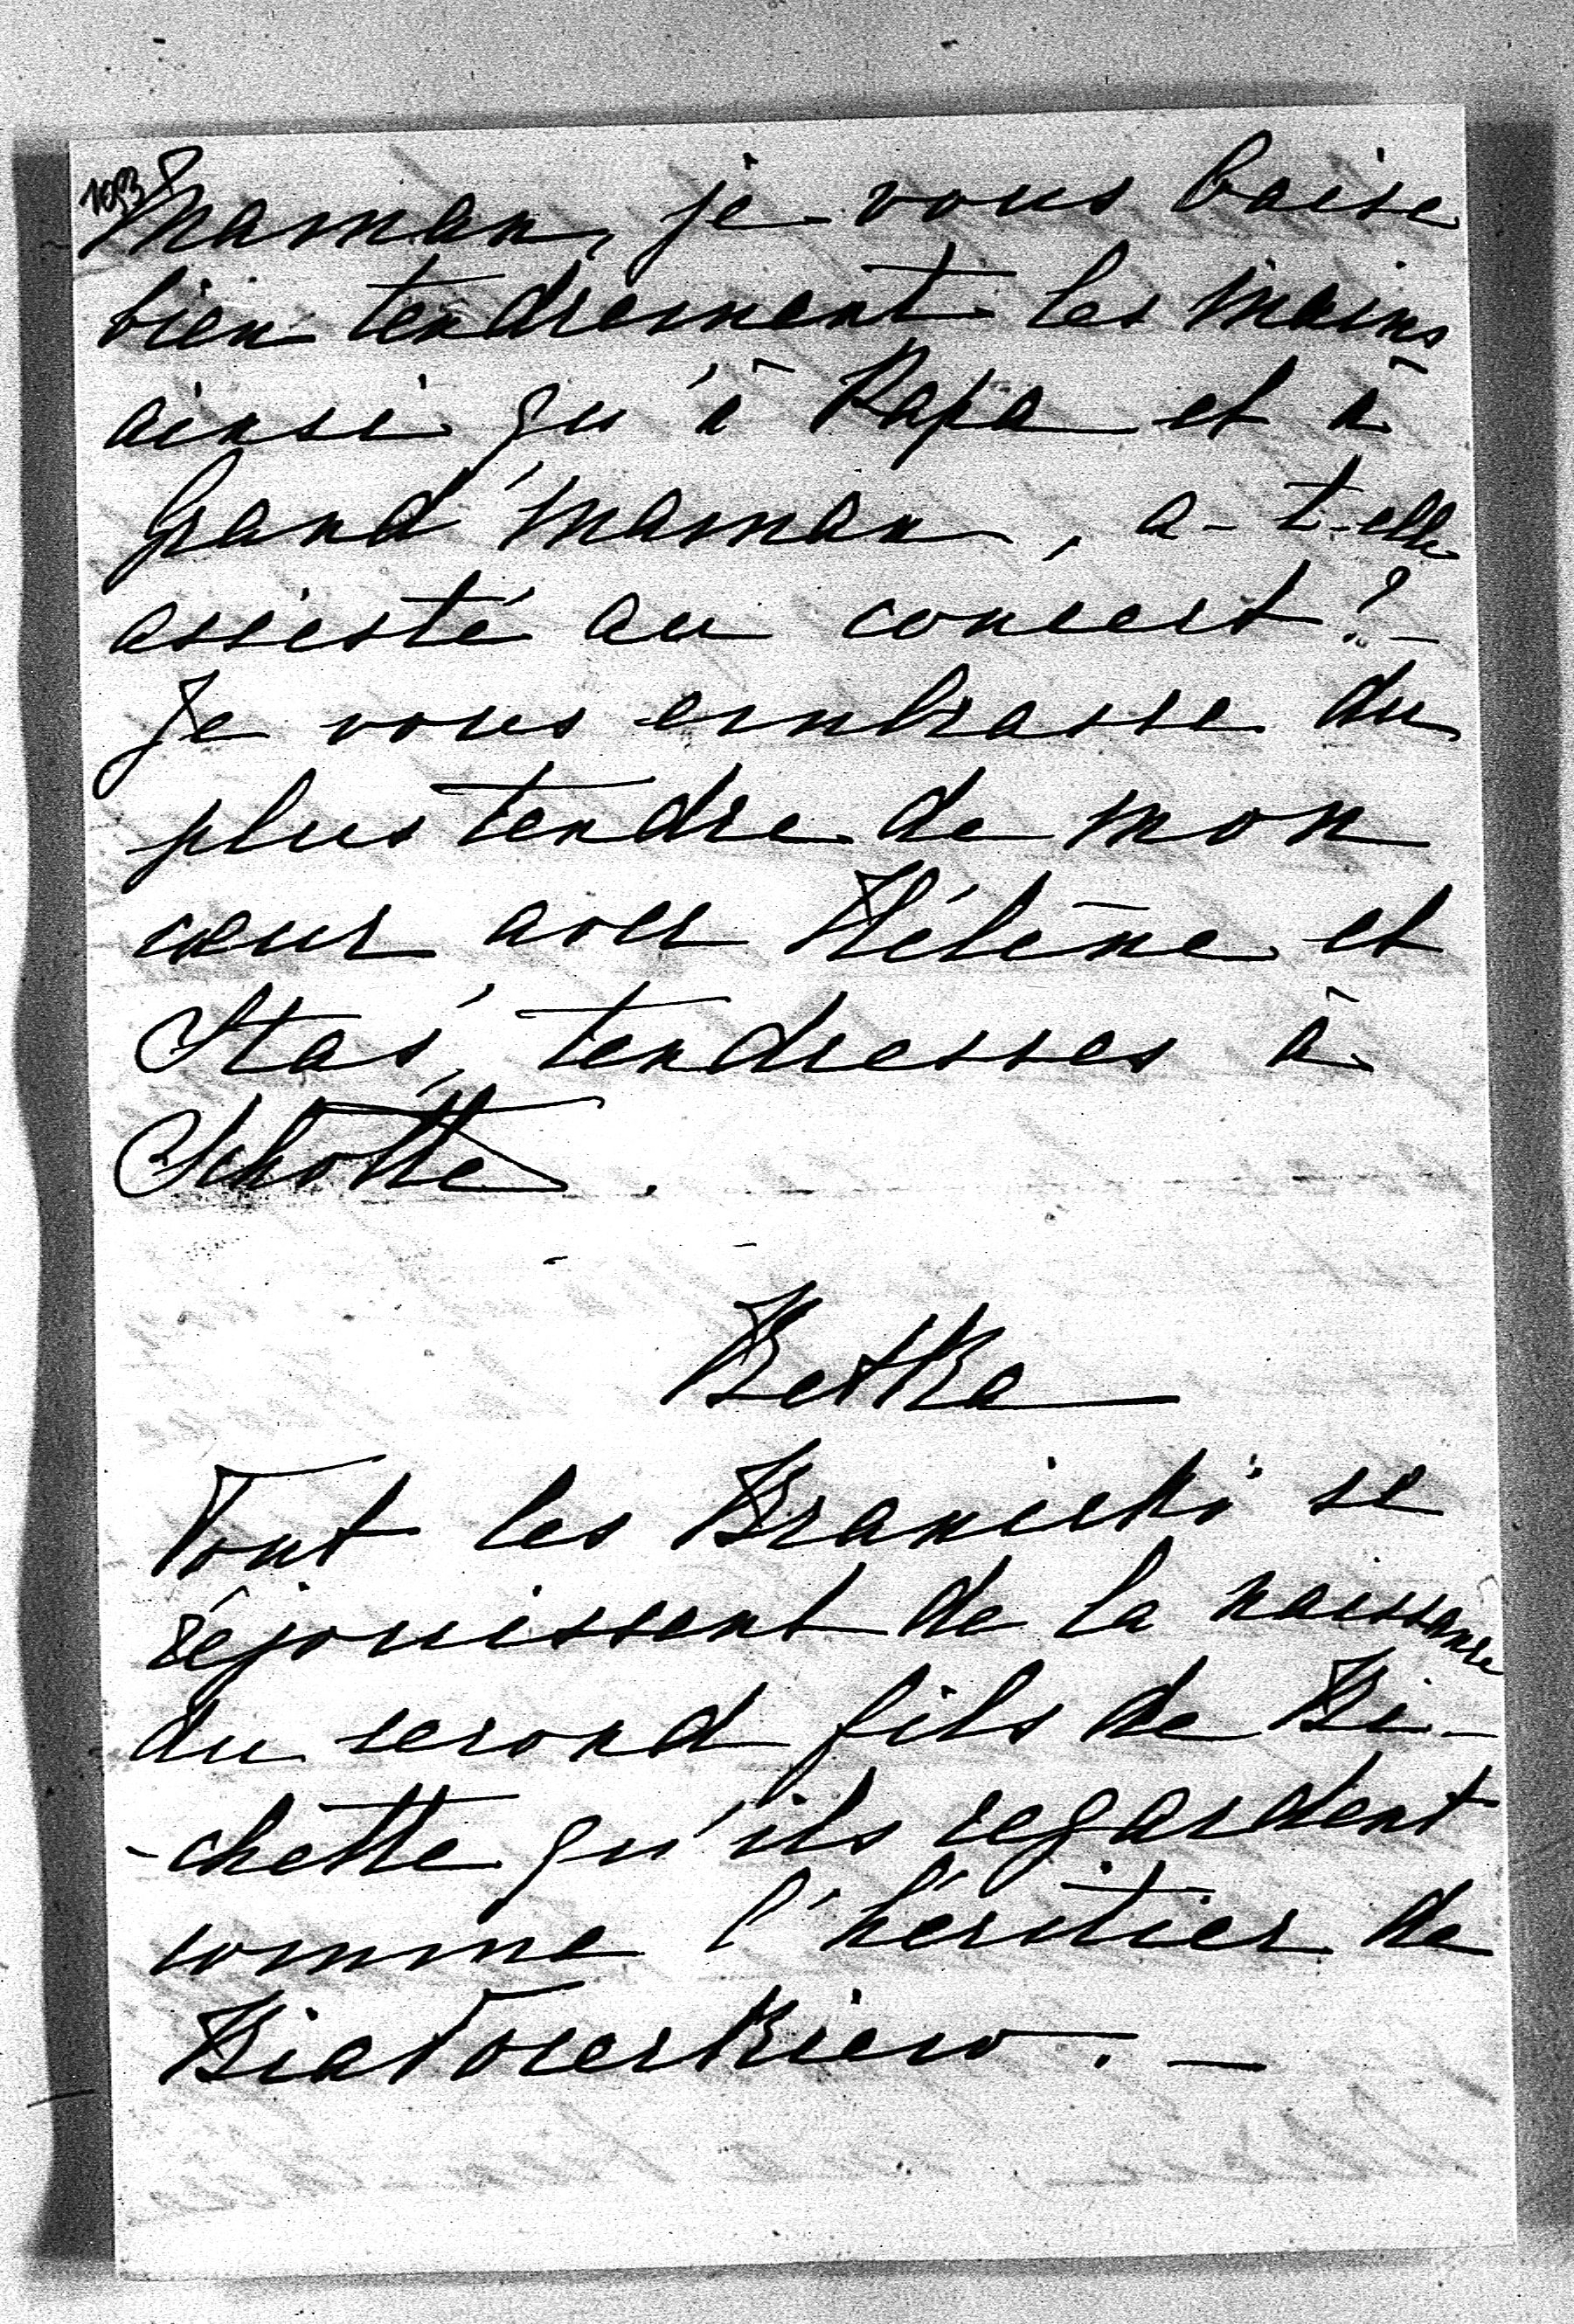 Maman, je vous baise
bien tendrement les mains
ainsi qu'à Papa et à
Grand'maman, a-t-elle
assisté au concert? -
Je vous embrasse du
plus tendre de mon
cœur avec Hélène et
Staś, tendresses à
Schotte.
Betka
Tout les Branicki se
réjouissent de la naissance
du second fils de Bi-
-chette qu'ils regardent
comme l'héritier de
Białocerkiew. -